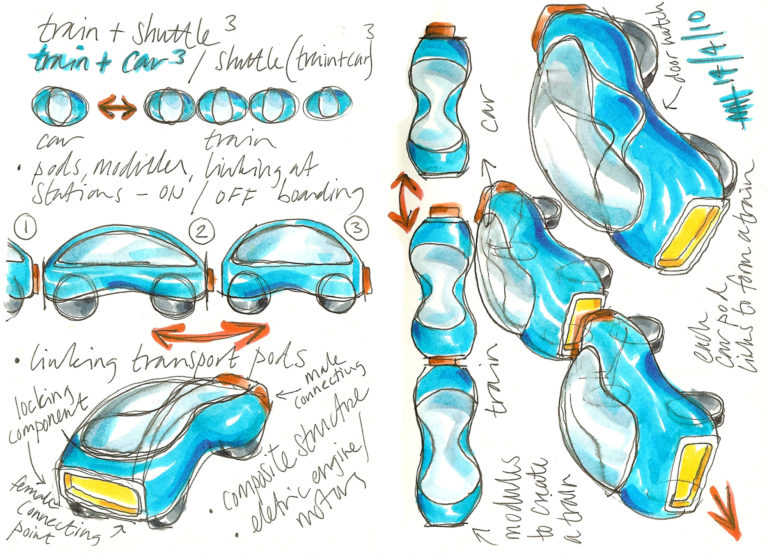 train + shuttle ³
train + car ³ / shuttle (train+car) ³
car train
• pods, modules, linking at
stations - ON / OFF boarding
1 2 3
• linking transport pods
locking
component
male
connecting
female
connecting
point
• composite structure
• eletric engine/
motors
car
train
modules
to create
a train
door hatch
14/4/10
each
car pod
links to form a train